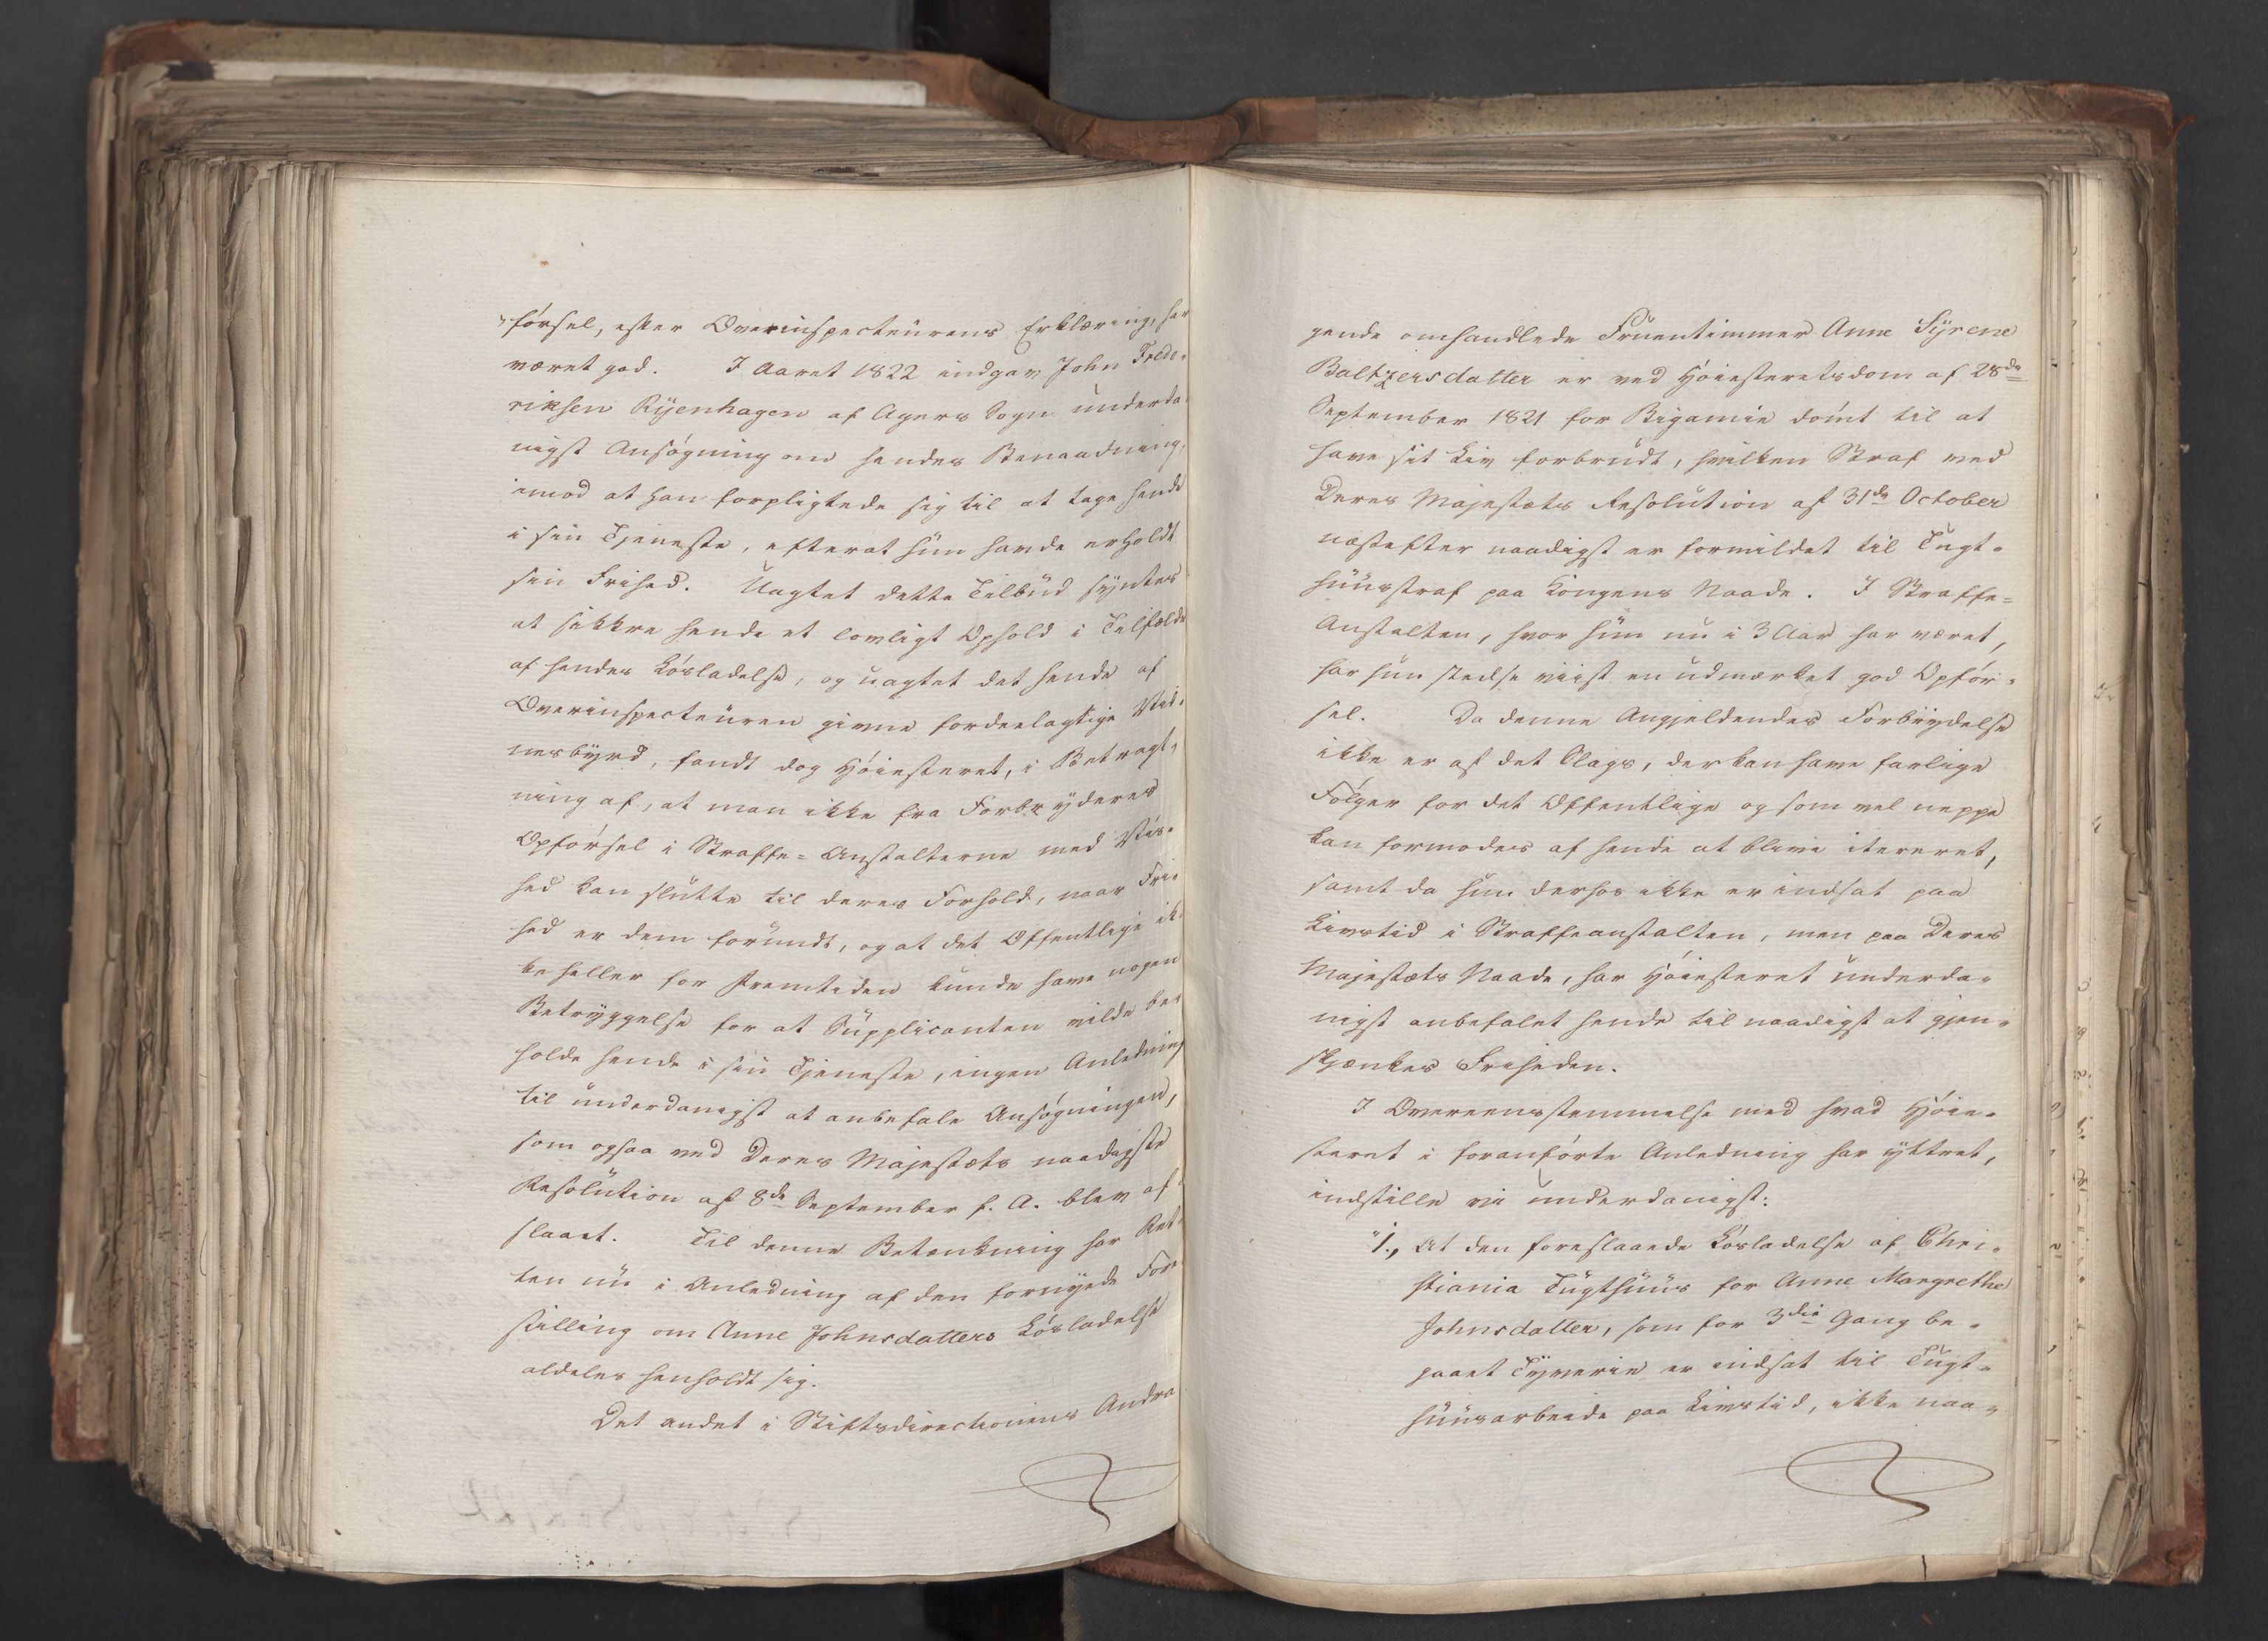 førsel, efter Overinspecteurens Erklæring, har
været god. I Aaret 1822 indgav John Frede-
riksen Ryenhagen af Agers Sogn underda-
nigst Ansøgning om hendes Benaadning,
imod at han forpligtede sig til at tage hende
i sin Tjeneste, efterat hun havde erholdt
sin Frihed. Uagtet dette Tilbud syntes
at sikkre hende et lovligt Ophold i Tilfælde
af hendes Løsladelse, og uagtet det hende af
Overinspecteuren givne fordeelagtige Vid-
nesbyrd, fandt dog Høiesteret, i Betragt-
ning af, at man ikke fra Forbryderes
Opførsel i Straffe-Anstalterne med Vis-
hed kan slutte til deres Forhold, naar Fri-
hed er dem forundt, og at det Offentlige ik-
ke heller for Fremtiden kunde have nogen
Betryggelse for at Supplicanten vilde be-
holde hende i sin Tjeneste, ingen Anledning
til underdanigst at anbefale Ansøgningen,
som ogsaa ved Deres Majestæts naadigste
Resolution af 8de September f. A. blev af-
slaaet. Til denne Betænkning har Ret-
ten nu i Anledning af den fornyede Fore-
stilling om Anne Johnsdatters Løsladelse
aldeles henholdt sig.
Det andet i Stiftsdirectionens Andra
gende omhandlede Fruentimmer Anne Syrene
Baltzersdatter er ved Høiesteretsdom af 28de
September 1821 for Bigamie dømt til at
have sit Liv forbrudt, hvilken Straf ved
Deres Majestæts Resolution af 31de October
næstefter naadigst er formildet til Tugt-
huusstraf paa Kongens Naade. I Straffe-
Anstalten, hvor hun nu i 3 Aar har været,
har hun stedse viist en udmærket god Opfør-
sel. Da denne Angjeldendes Forbrydelse
ikke er af det Slags, der kan have farlige
Følger for det Offentlige og som vel neppe
kan formodes af hende at blive itereret,
samt da hun derhos ikke er indsat paa
Livstid i Straffeanstalten, men paa Deres
Majestæts Naade, har Høiesteret underda-
nigst anbefalet hende til naadigst at gjen-
skjænkes Friheden.
I Overeensstemmelse med hvad Høie-
steret i foranførte Anledning har yttret,
indstille vi underdanigst:
"1., At den foreslaaede Løsladelse af Chri-
stiania Tugthuus for Anne Margrethe
Johnsdatter, som for 3die Gang be-
gaaet Tyverie er indsat til Tugt-
huusarbeide paa Livstid, ikke naa-